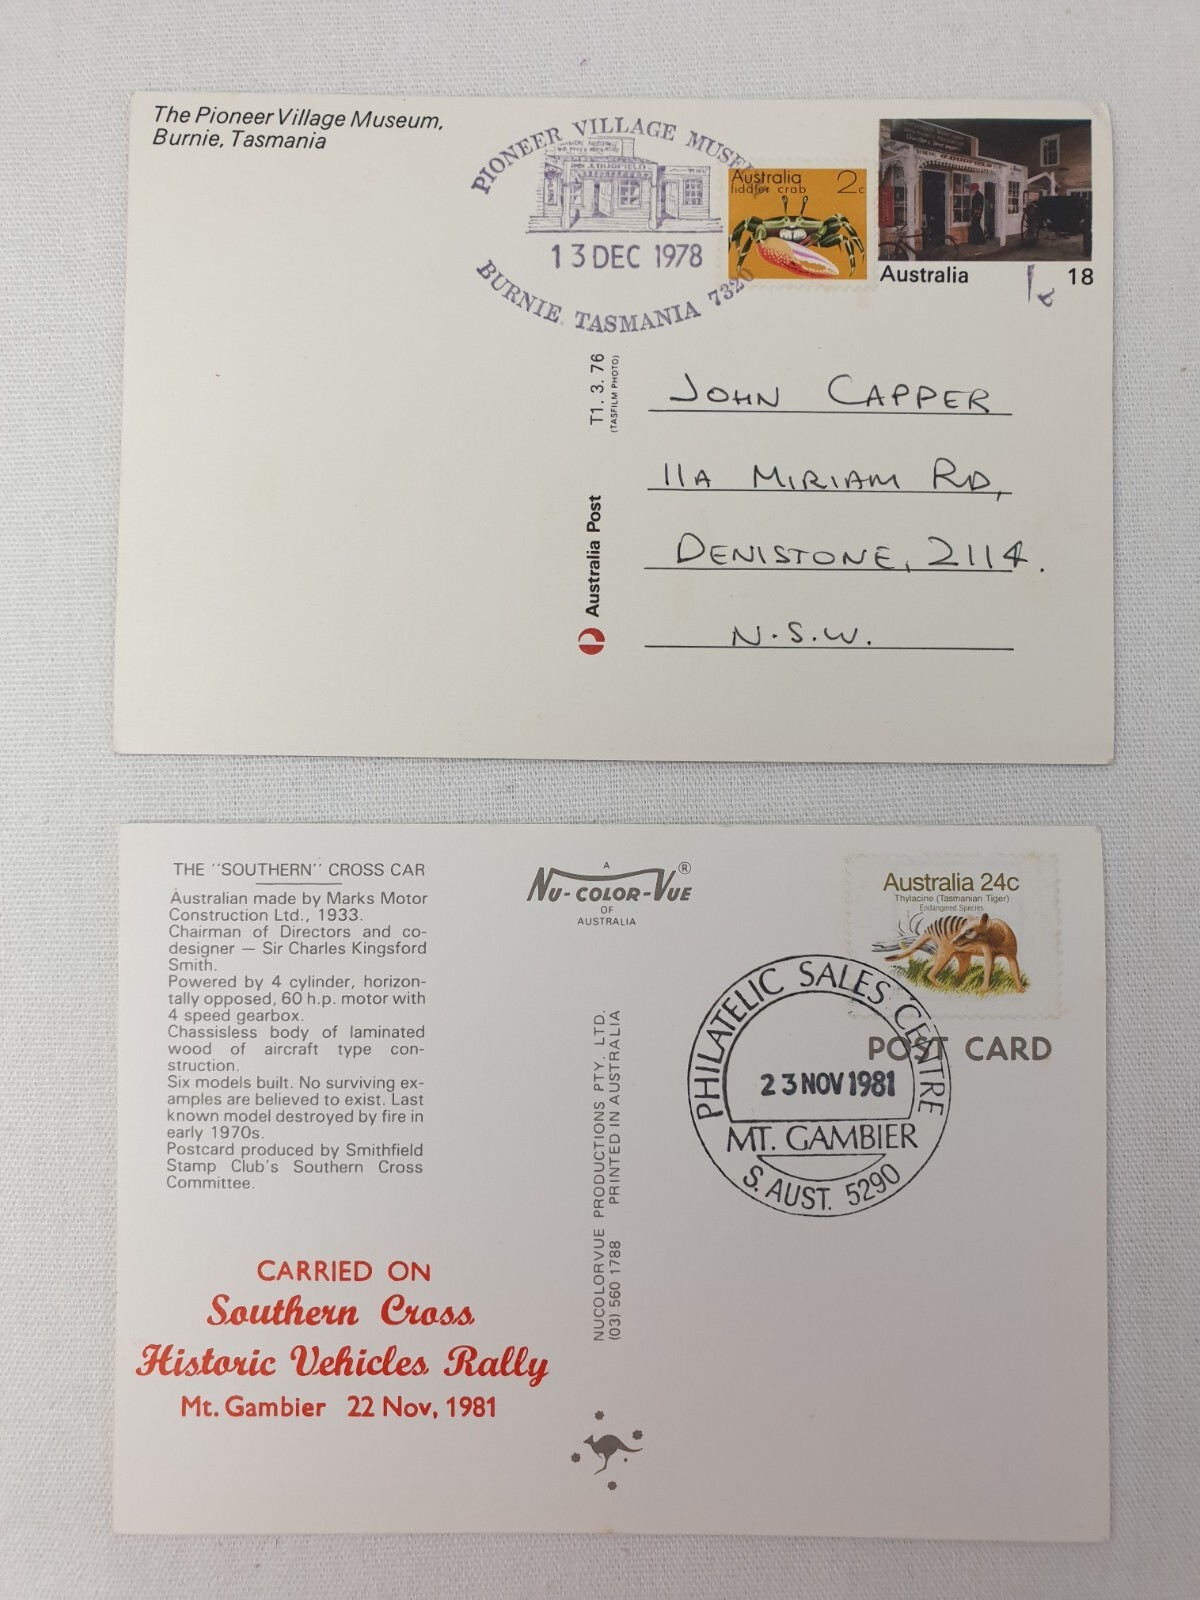 The Pioneer Village Museum,
Burnie, Tasmania
PIONEER VILLAGE MUSE
13 DEC 1978
BURNIE, TASMANIA 7320
Australia 2c
fiddler crab
Australia 18
T1. 3. 76
(TASFILM PHOTO)
Australia Post
JOHN CAPPER
11A MIRIAM RD,
DENISTONE, 2114.
N.S.W.
THE "SOUTHERN" CROSS CAR
Australian made by Marks Motor
Construction Ltd., 1933.
Chairman of Directors and co-
designer — Sir Charles Kingsford
Smith.
Powered by 4 cylinder, horizon-
tally opposed, 60 h.p. motor with
4 speed gearbox.
Chassisless body of laminated
wood of aircraft type con-
struction.
Six models built. No surviving ex-
amples are believed to exist. Last
known model destroyed by fire in
early 1970s.
Postcard produced by Smithfield
Stamp Club's Southern Cross
Committee.
CARRIED ON
Southern Cross
Historic Vehicles Rally
Mt. Gambier 22 Nov, 1981
A
NU-COLOR-VUE®
OF
AUSTRALIA
NUCOLORVUE PRODUCTIONS PTY. LTD.
(03) 560 1788 PRINTED IN AUSTRALIA
Australia 24c
Thylacine (Tasmanian Tiger)
Endangered Species
POST CARD
PHILATELIC SALES CENTRE
23 NOV 1981
MT. GAMBIER
S. AUST. 5290